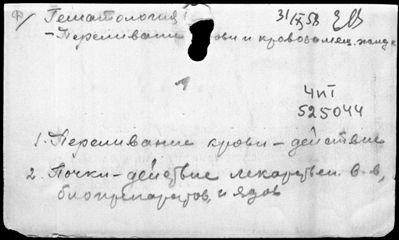 Гематология 31/IX 58
- Переливание крови и кровозамещ. жидк
ЧПI
525044
1. Переливание крови - действие
2. Почки - действие лекарствен. в-в,
биопрепаратов, и ядов